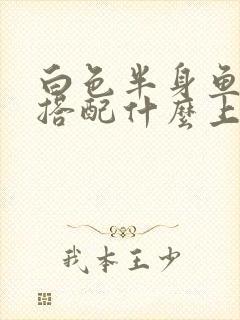 白色半身鱼
搭配什麼上
我本王少